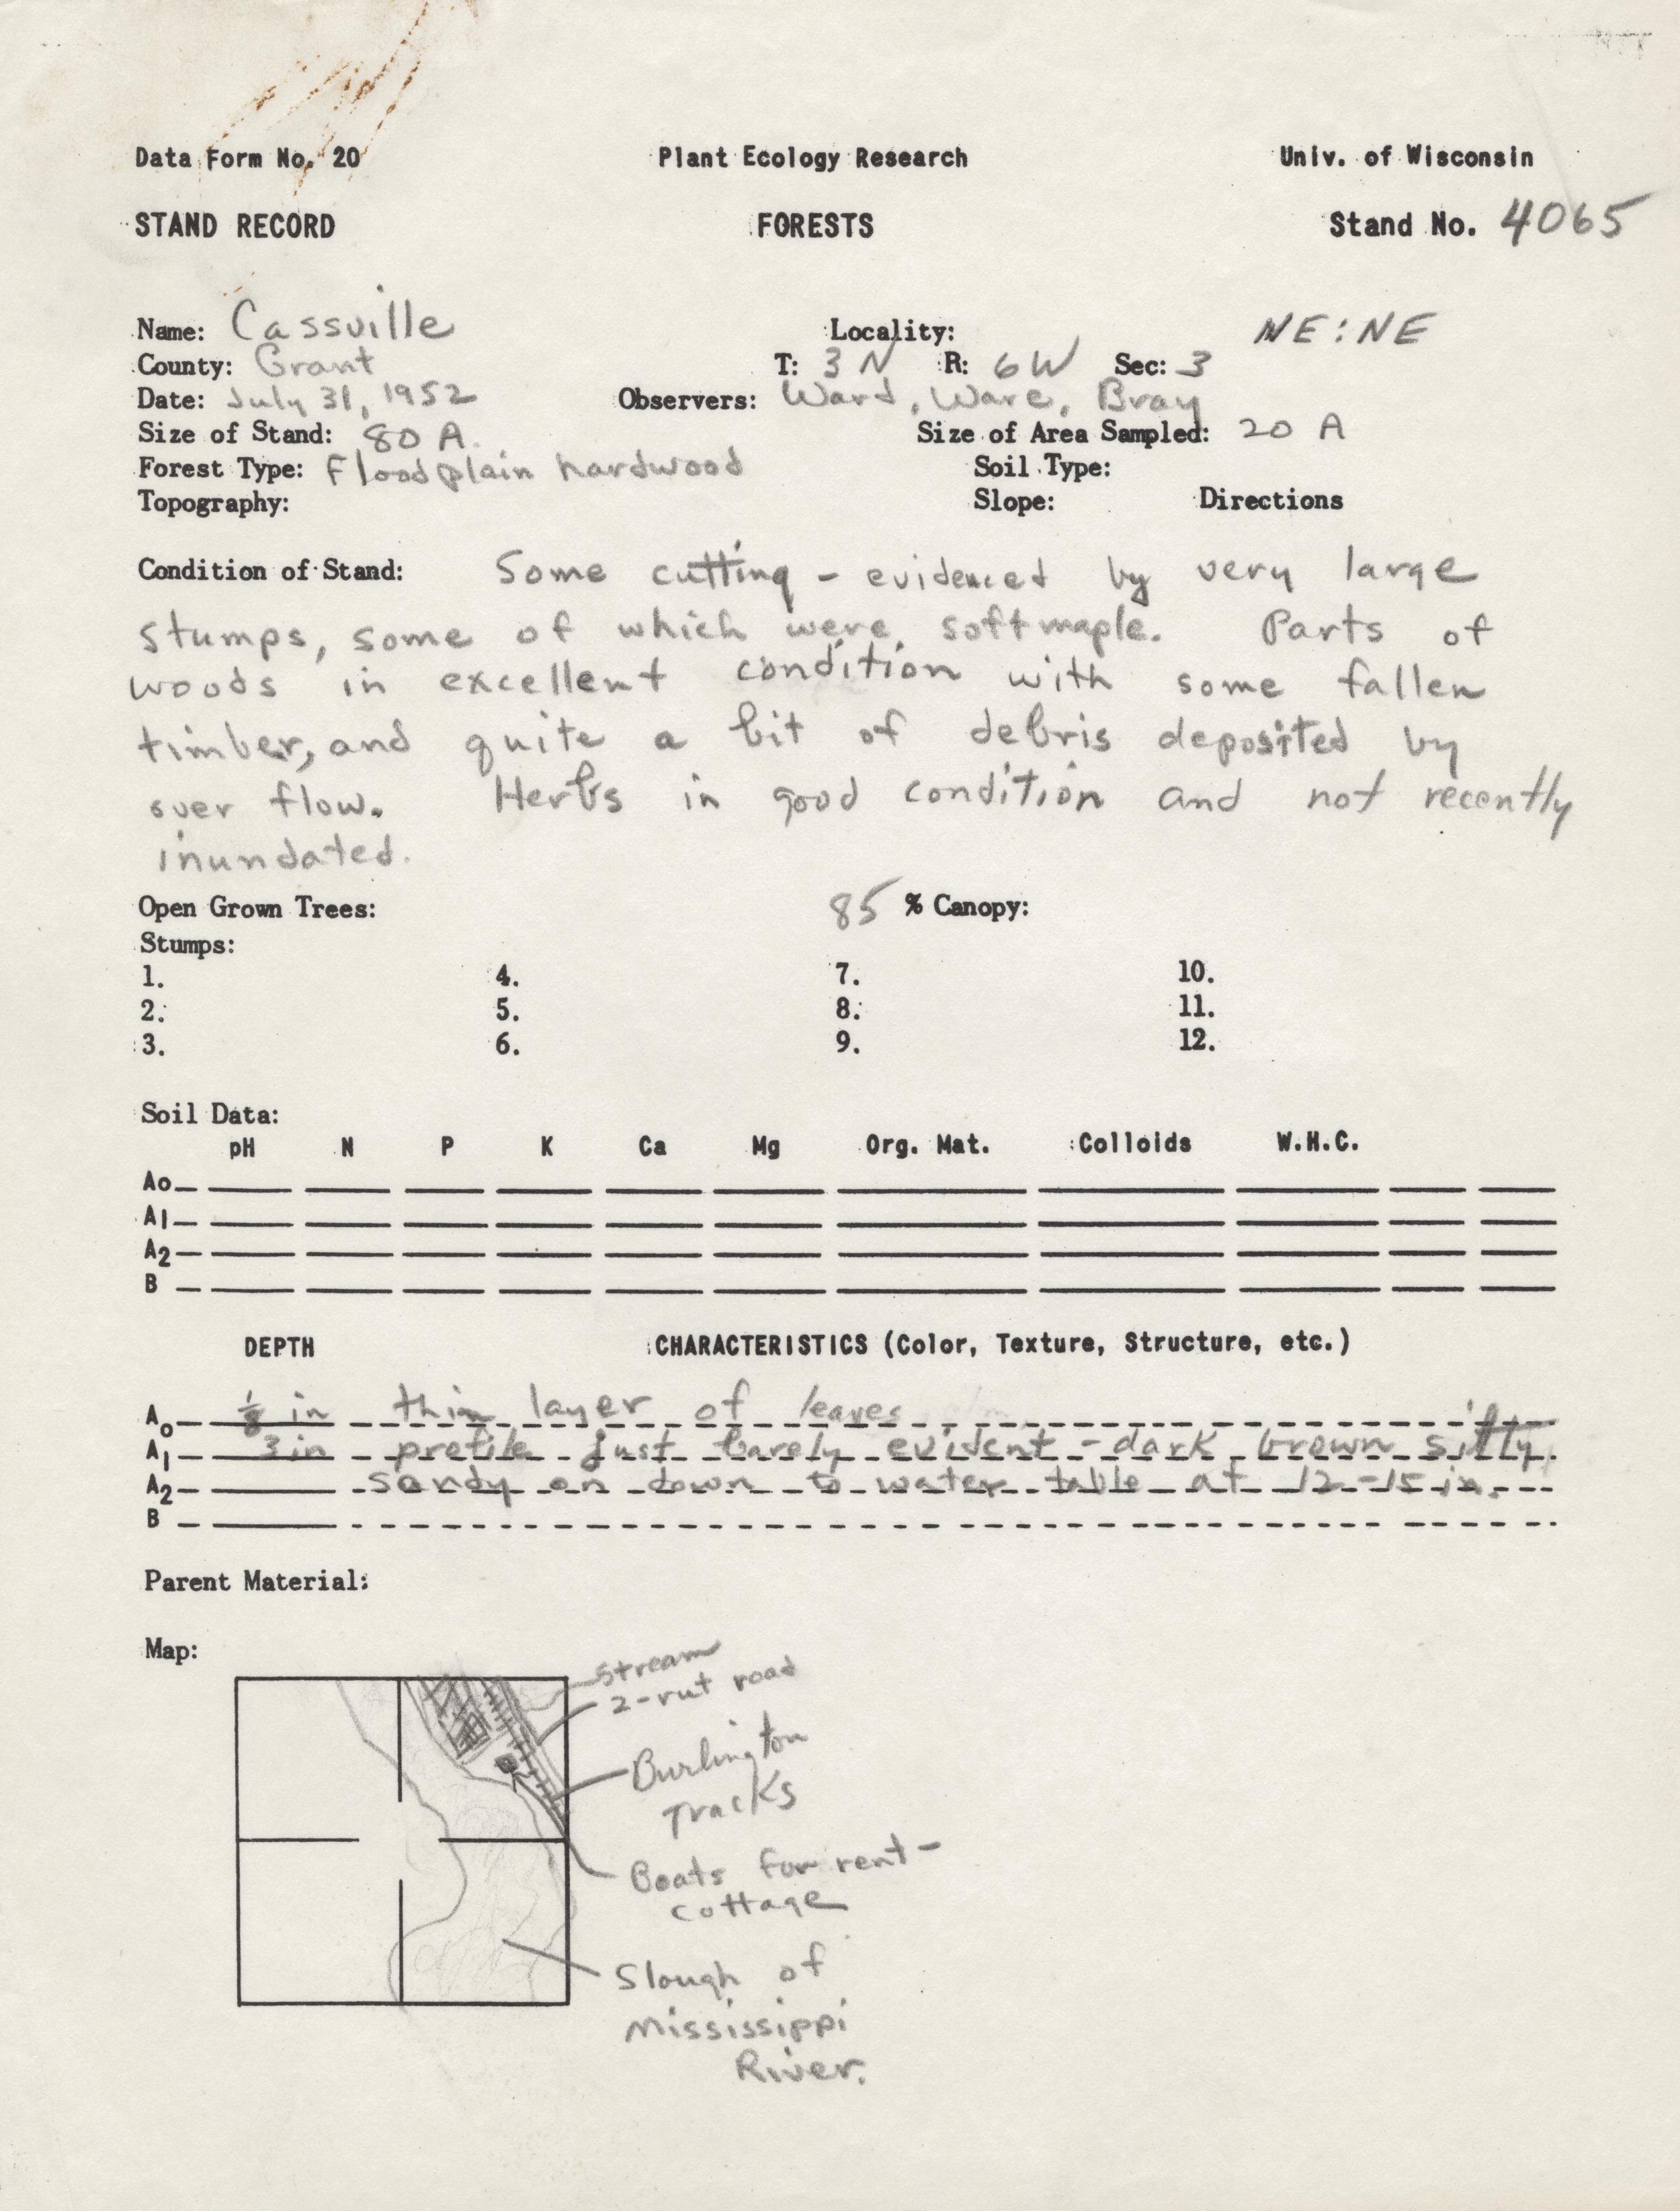 Data Form No. 20 Plant Ecology Research Univ. of Wisconsin
STAND RECORD FORESTS Stand No. 4065
Name: Cassville Locality: NE:NE
County: Grant T: 3N R: 6W Sec: 3
Date: July 31, 1952 Observers: Ward, Ware, Bray
Size of Stand: 80 A. Size of Area Sampled: 20 A
Forest Type: Floodplain hardwood Soil Type:
Topography: Slope: Directions
Condition of Stand: Some cutting - evidenced by very large
stumps, some of which were soft maple. Parts of
woods in excellent condition with some fallen
timber, and quite a bit of debris deposited by
over flow. Herbs in good condition and not recently
inundated.
Open Grown Trees: 85 % Canopy:
Stumps:
1. 4. 7. 10.
2. 5. 8. 11.
3. 6. 9. 12.
Soil Data:
pH N P K Ca Mg Org. Mat. Colloids W.H.C.
Ao
A1
A2
B
DEPTH CHARACTERISTICS (Color, Texture, Structure, etc.)
Ao 1/8 in thin layer of leaves
A1 3 in profile just barely evident - dark brown silty.
A2 sandy on down to water table at 12-15 in.
B
Parent Material:
Map:
Stream
2-rut road
Burlington
Tracks
Boats for rent -
cottage
Slough of
Mississippi
River.